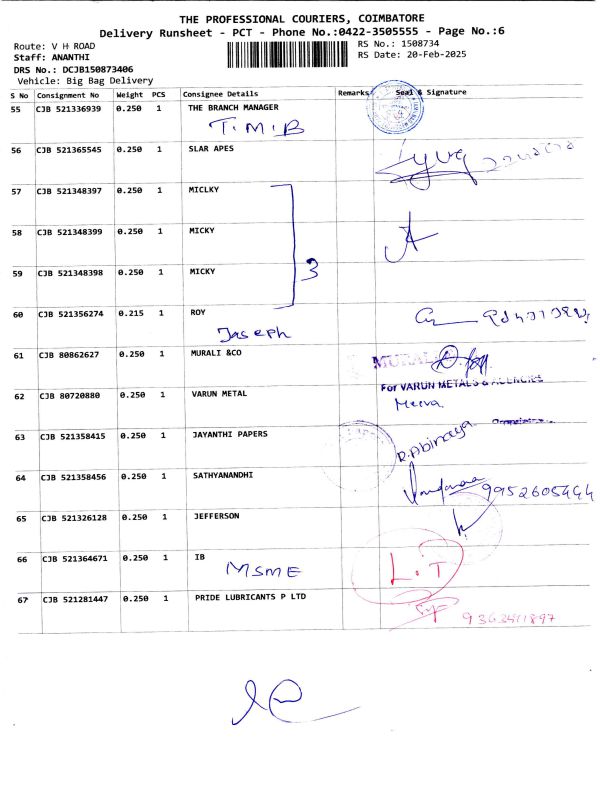 THE PROFESSIONAL COURIERS, COIMBATORE
Delivery Runsheet - PCT - Phone No.:0422-3505555 - Page No.:6
Route: V H ROAD
RS No.: 1508734
Staff: ANANTHI
RS Date: 20-Feb-2025
DRS No.: DCJB150873406
Vehicle: Big Bag Delivery
S No Consignment No Weight PCS Consignee Details Remarks Seal & Signature
55 CJB 521336939 0.250 1 THE BRANCH MANAGER
T.M.B
56 CJB 521365545 0.250 1 SLAR APES
57 CJB 521348397 0.250 1 MICLKY
58 CJB 521348399 0.250 1 MICKY
3
59 CJB 521348398 0.250 1 MICKY
60 CJB 521356274 0.215 1 ROY
Joseph
61 CJB 80862627 0.250 1 MURALI &CO
MURALI
62 CJB 80720880 0.250 1 VARUN METAL
For VARUN METALS & AGENCIES
Meena
63 CJB 521358415 0.250 1 JAYANTHI PAPERS
R.Abinaya
64 CJB 521358456 0.250 1 SATHYANANDHI
9952605444
65 CJB 521326128 0.250 1 JEFFERSON
66 CJB 521364671 0.250 1 IB
MSME
L.T
67 CJB 521281447 0.250 1 PRIDE LUBRICANTS P LTD
9363411897